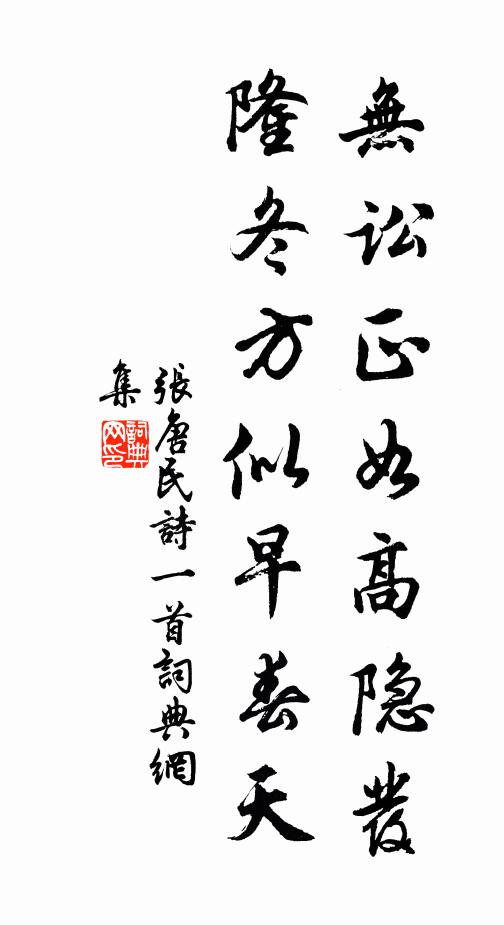 無訟正如高隐
隆冬方似早春天
張唐民詩一首詞典網
集
詞典
网印